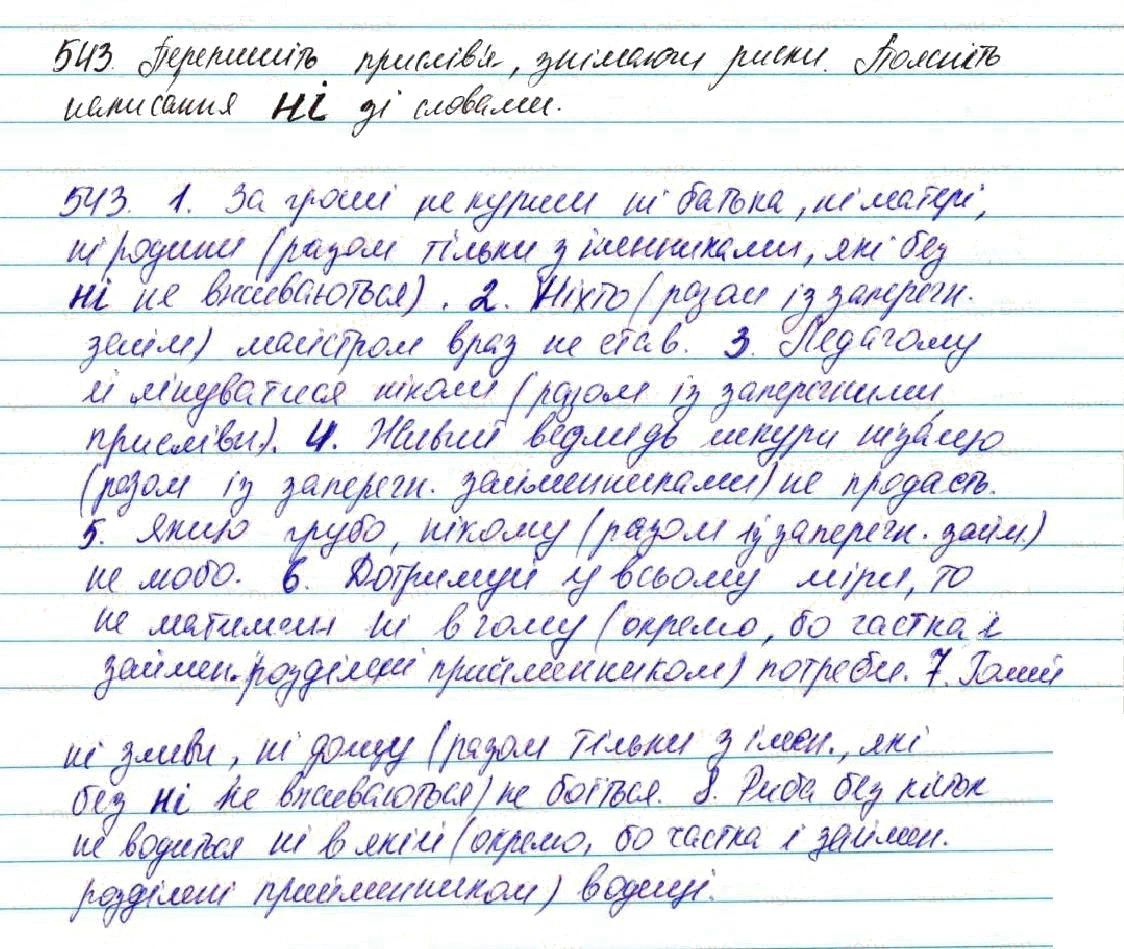 543. Перепишіть прислів'я, знімаючи риски. Поясніть
написання ні зі словами.
543. 1. За гроші не купиш ні батька, ні матері,
ні родини (разом тільки з іменниками, які без
ні не вживаються). 2. Ніхто (разом із заперечн.
займ) майстром враз не став. 3. Педагогу
й лінуватися ніколи (разом із заперечними
прислівн). 4. Живий ведмідь шкури нізащо
(разом із заперечн. займенниками) не продасть.
5. Якщо грубо, нікому (разом із заперечн. займ.)
не любо. 6. Дотримуй у всьому міри, то
не матимеш ні в чому (окремо, бо частка і
займен. розділені прийменником) потреби. 7. Голий
ні зливи, ні дощу (разом тільки з імен., які
без ні не вживаються) не боїться. 8. Риба без кісток
не водиться ні в якій (окремо, бо частка і займен.
розділені прийменником) водиці.